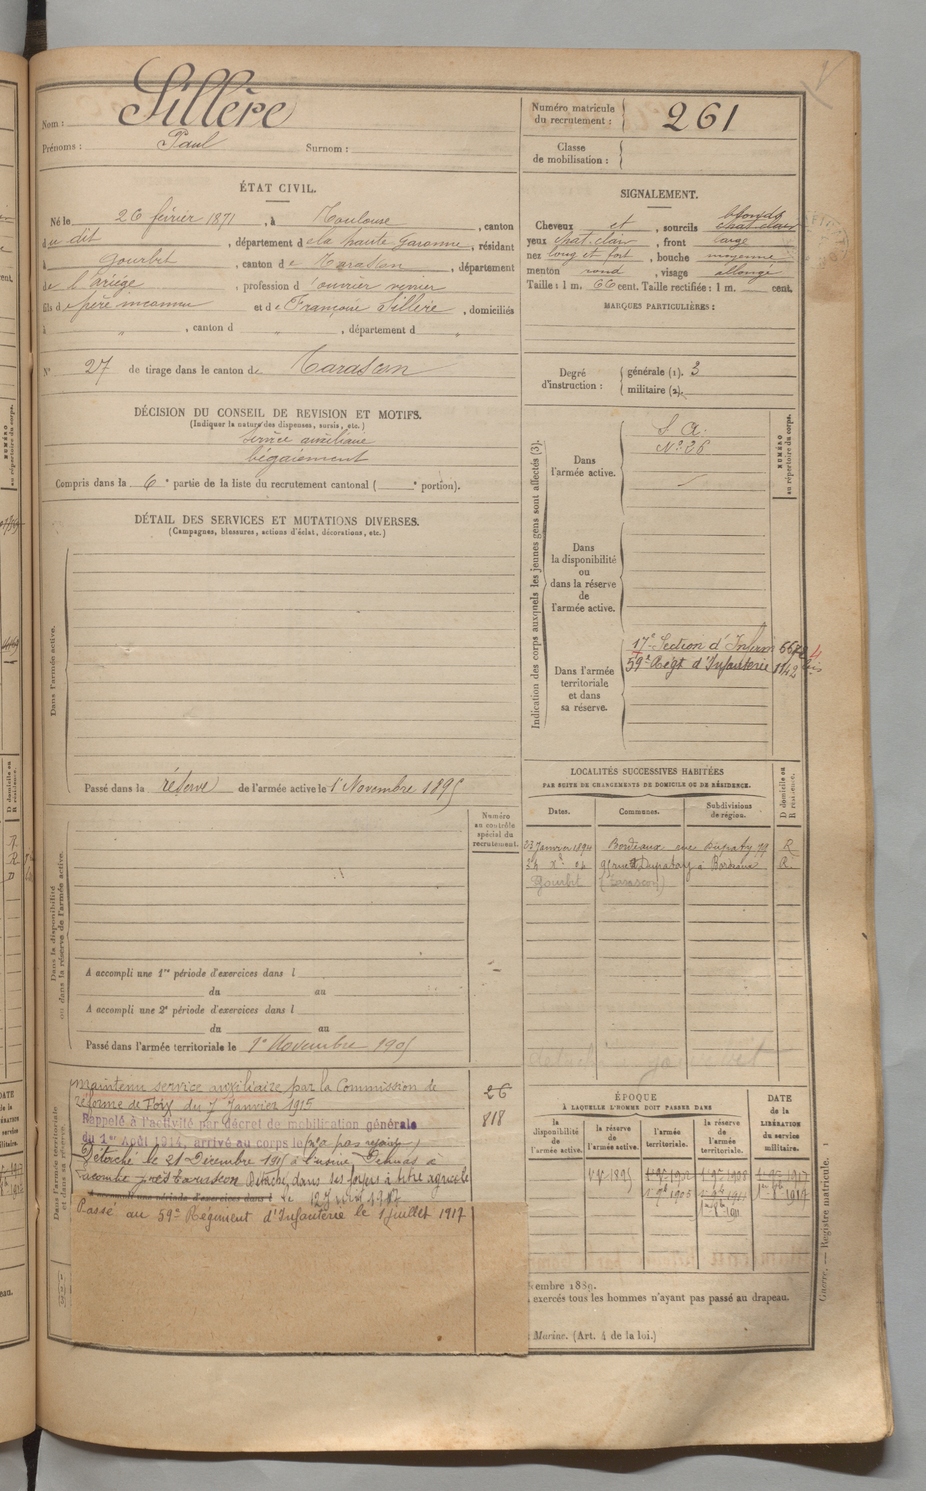 Nom : Sillère
Prénoms : Paul Surnom :
ÉTAT CIVIL.
Né le 26 février 1871, à Toulouse, canton
du dit, département de la haute Garonne, résidant
à Gourbit, canton de Tarascon, département
de l'Ariège, profession d'ouvrier
fils de père inconnu et de Françoise Sillère, domiciliés
à " , canton d " , département d "
N° 27 de tirage dans le canton de Tarascon
DÉCISION DU CONSEIL DE REVISION ET MOTIFS.
(Indiquer la nature des dispenses, sursis, etc.)
Service auxiliaire
bégaiement
Compris dans la 6e partie de la liste du recrutement cantonal ( e portion).
DÉTAIL DES SERVICES ET MUTATIONS DIVERSES.
(Campagnes, blessures, actions d'éclat, décorations, etc.)
Dans l'armée active.
Passé dans la réserve de l'armée active le 1er Novembre 1895
Numéro
au contrôle
spécial du
recrutement.
Dans la disponibilité
ou dans la réserve de l'armée active.
A accompli une 1re période d'exercices dans l
du au
A accompli une 2e période d'exercices dans l
du au
Passé dans l'armée territoriale le 1er Novembre 1905
Dans l'armée territoriale
et dans sa réserve.
Maintenu service auxiliaire par la Commission de
réforme de Foix du 7 Janvier 1915
Rappelé à l'activité par décret de mobilisation générale
du 1er Août 1914, arrivé au corps le (n'a pas rejoint)
Détaché le 21 Décembre 1915 à l'usine
Lacombe près Tarascon Détaché dans ses foyers à titre agricole
Passé au 59e Régiment d'Infanterie le 1 juillet 1917
26
818
Numéro matricule
du recrutement : 261
Classe
de mobilisation :
SIGNALEMENT.
blonds
Cheveux et, sourcils chat. clair
yeux chat. clair, front large
nez long et fort, bouche moyenne
menton rond, visage allongé
Taille : 1 m. 66 cent. Taille rectifiée : 1 m. cent.
MARQUES PARTICULIÈRES :
Degré
d'instruction :
générale (1). 3
militaire (2).
Indication des corps auxquels les jeunes gens sont affectés (3).
NUMÉRO
au répertoire du corps.
Dans
l'armée active.
S. A.
N° 26
Dans
la disponibilité
ou
dans la réserve
de
l'armée active.
Dans l'armée
territoriale
et dans
sa réserve.
17e Section d'Infirm
59e Régt d'Infanterie 1142 bis
LOCALITÉS SUCCESSIVES HABITÉES
PAR SUITE DE CHANGEMENTS DE DOMICILE OU DE RÉSIDENCE.
Dates. Communes. Subdivisions
de région. D domicile ou
R résidence.
23 Janvier 1894 Bordeaux rue Dupaty 99 R
Bordeaux R
Gourbit (Tarascon)
ÉPOQUE
À LAQUELLE L'HOMME DOIT PASSER DANS
DATE
de la
LIBÉRATION
du service
militaire.
la
disponibilité
de
l'armée active.
la réserve
de
l'armée active.
l'armée
territoriale.
la réserve
de
l'armée
territoriale.
embre 1889.
, exercés tous les hommes n'ayant pas passé au drapeau.
Marine. (Art. 4 de la loi.)
Guerre. — Registre matricule. 1